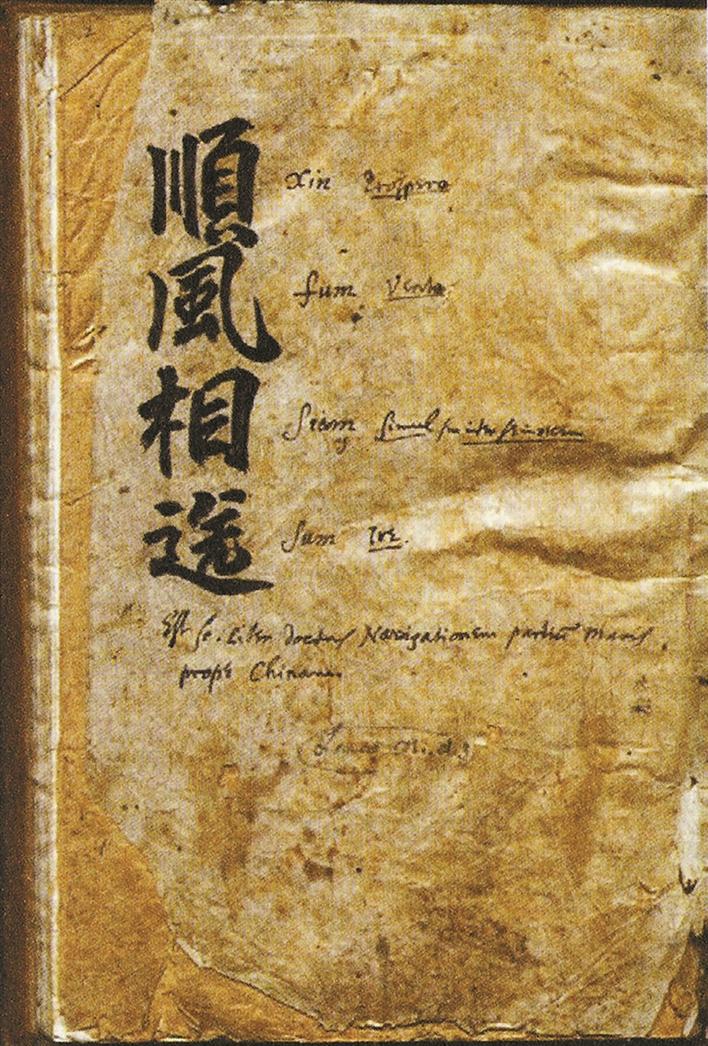 順 Xin Prospero
風 fum Vento
相 Siam simul
送 Sum ire.
Est sc. Liber docens Navigationem partiū Maris,
prope Chinam.